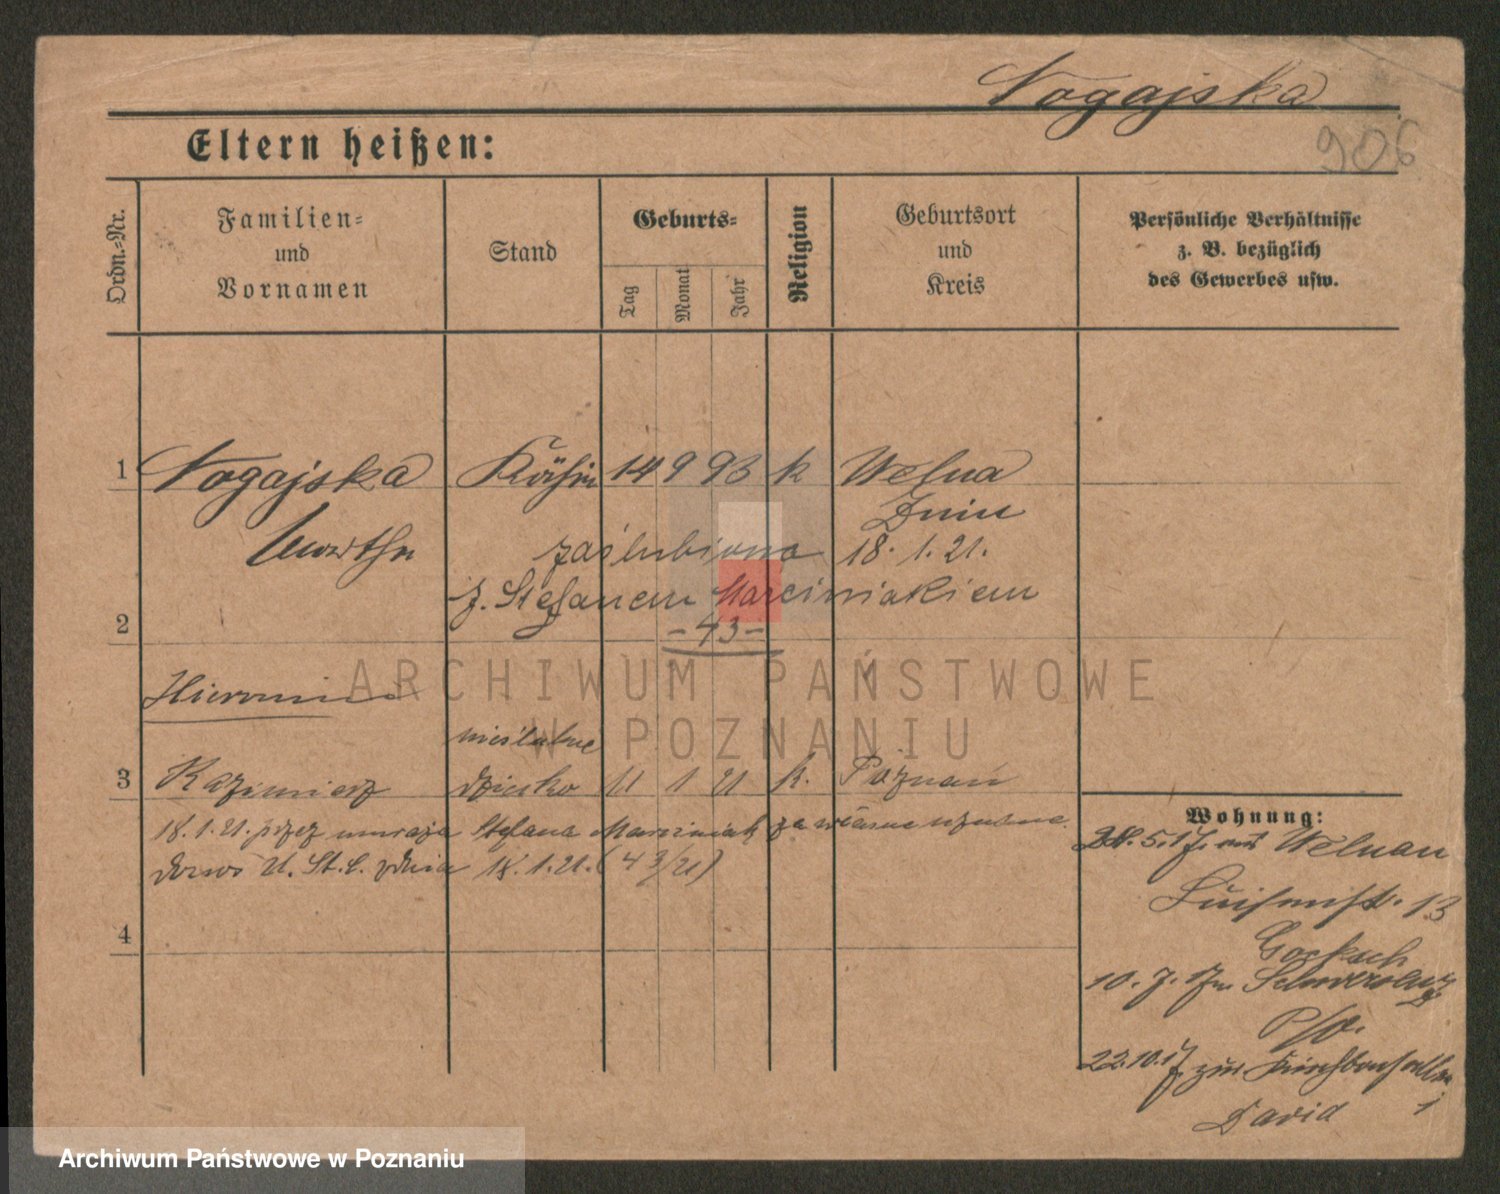 Nogajska
906
Eltern heißen:
Ordn.-Nr.
Familien-
und
Vornamen
Stand
Geburts-
Tag
Monat
Jahr
Religion
Geburtsort
und
Kreis
Persönliche Verhältnisse
z. B. bezüglich
des Gewerbes usw.
1 Nogajska Köchin 14 9 93 k Welna
Znin
Martha zaślubiona 18. 1. 21.
z. Stefanem Marciniakiem
2 -43-
Hieronim
nieślubne
3 Kazimierz dziecko 11 1 21 k. Poznań
18.1.21. przez męża Stefana Marciniak za własne uznane.
dowód U. St. C. z dnia 18.1.21. (43/21)
4
Wohnung:
5. 17. aus Welnau
Luisenstr. 13
10. 7. 17
22.10.17 zur
David
ARCHIWUM PAŃSTWOWE
W POZNANIU
Archiwum Państwowe w Poznaniu